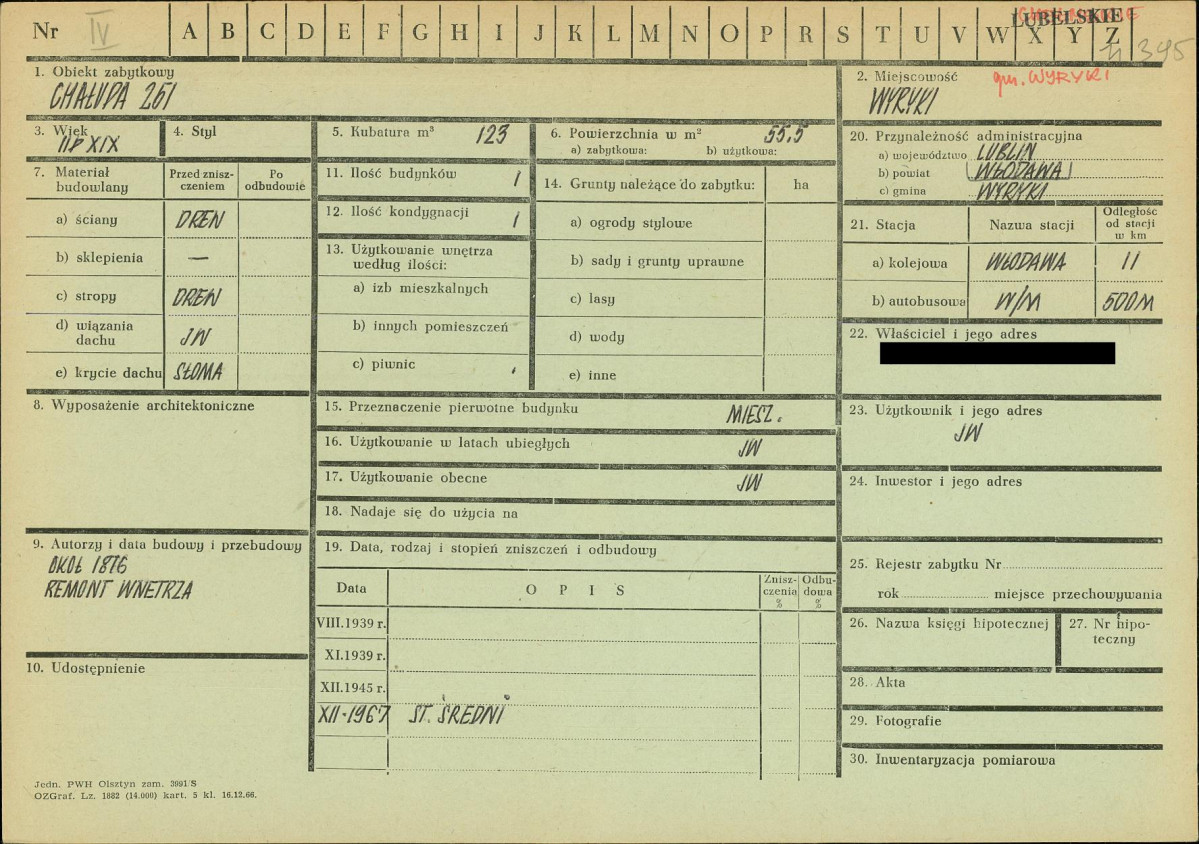 Nr IV A B C D E F G H I J K L M N O P R S T U V W X Y Z
LUBELSKIE
395
1. Obiekt zabytkowy
CHAŁUPA 261
2. Miejscowość
gm. WYRYKI
WYRYKI
3. Wiek
II P XIX
4. Styl
5. Kubatura m³ 123
6. Powierzchnia w m² 55.5
a) zabytkowa: b) użytkowa:
7. Materiał budowlany
Przed znisz-
czeniem
Po
odbudowie
a) ściany DREW
b) sklepienia —
c) stropy DREW
d) wiązania
dachu JW
e) krycie dachu SŁOMA
11. Ilość budynków 1
12. Ilość kondygnacji 1
13. Użytkowanie wnętrza
według ilości:
a) izb mieszkalnych
b) innych pomieszczeń
c) piwnic
14. Grunty należące do zabytku: ha
a) ogrody stylowe
b) sady i grunty uprawne
c) lasy
d) wody
e) inne
20. Przynależność administracyjna
a) województwo LUBLIN
b) powiat WŁODAWA
c) gmina WYRYKI
21. Stacja
Nazwa stacji
Odległość
od stacji
w km
a) kolejowa WŁODAWA 11
b) autobusowa W/M 500M
22. Właściciel i jego adres
8. Wyposażenie architektoniczne
15. Przeznaczenie pierwotne budynku MIESZ.
16. Użytkowanie w latach ubiegłych JW
17. Użytkowanie obecne JW
18. Nadaje się do użycia na
23. Użytkownik i jego adres
JW
24. Inwestor i jego adres
9. Autorzy i data budowy i przebudowy
OKOŁ 1876
REMONT WNETRZA
10. Udostępnienie
19. Data, rodzaj i stopień zniszczeń i odbudowy
Data
OPIS
Znisz-
czenia
%
Odbu-
dowa
%
VIII.1939 r.
XI.1939 r.
XII.1945 r.
XII-1967 ST. ŚREDNI
25. Rejestr zabytku Nr
rok miejsce przechowywania
26. Nazwa księgi hipotecznej
27. Nr hipo-
teczny
28. Akta
29. Fotografie
30. Inwentaryzacja pomiarowa
Jedn. PWH Olsztyn zam. 3991/S
OZGraf. Lz. 1882 (14.000) kart. 5 kl. 16.12.66.